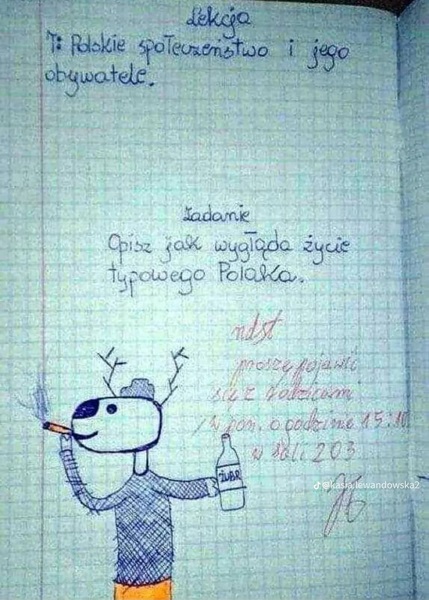 Lekcja
T: Polskie społeczeństwo i jego
obywatele.
Zadanie
Opisz jak wygląda życie
typowego Polaka.
ndst
proszę pojawić
się z rodzicami
w pon. o godzinie 15:10
w sali 203
ŻUBR
@kasia.lewandowska2